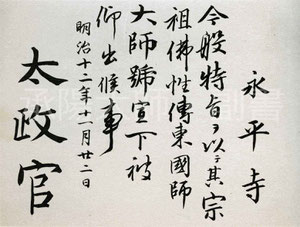 永平寺
今般特旨ヲ以テ其宗
祖佛性傳東國師
大師號宣下被
仰出候事
明治十二年十一月廿二日
太政官